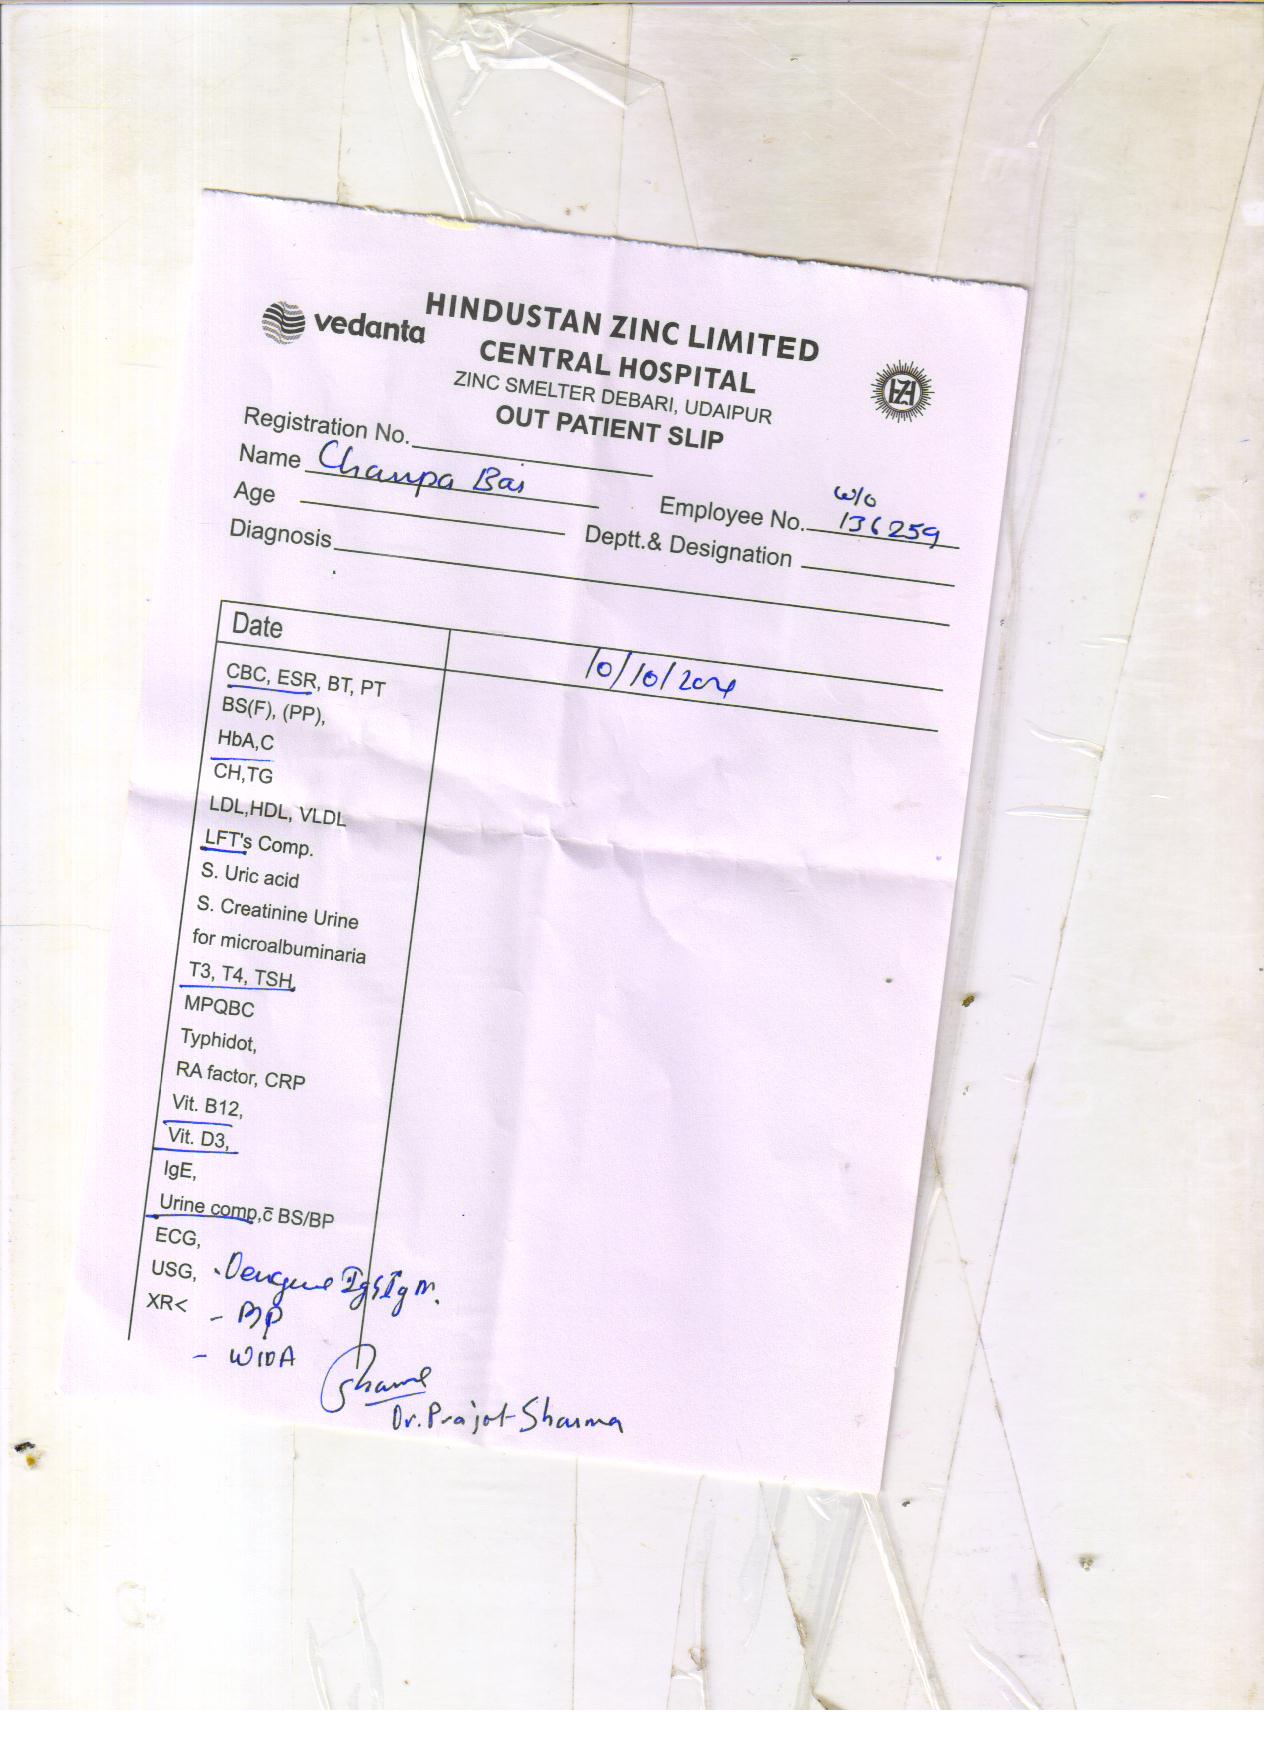 vedanta
HINDUSTAN ZINC LIMITED
CENTRAL HOSPITAL
ZINC SMELTER DEBARI, UDAIPUR
OUT PATIENT SLIP
Registration No.
Name Champa Bai
w/o
Employee No. 136259
Age
Deptt.& Designation
Diagnosis
Date 10/10/2024
CBC, ESR, BT, PT
BS(F), (PP),
HbA,C
CH,TG
LDL,HDL, VLDL
LFT's Comp.
S. Uric acid
S. Creatinine Urine
for microalbuminaria
T3, T4, TSH,
MPQBC
Typhidot,
RA factor, CRP
Vit. B12,
Vit. D3,
IgE,
Urine comp,c̄ BS/BP
ECG,
USG, . Dengue IgG IgM.
XR<
Dr. Prajot Sharma